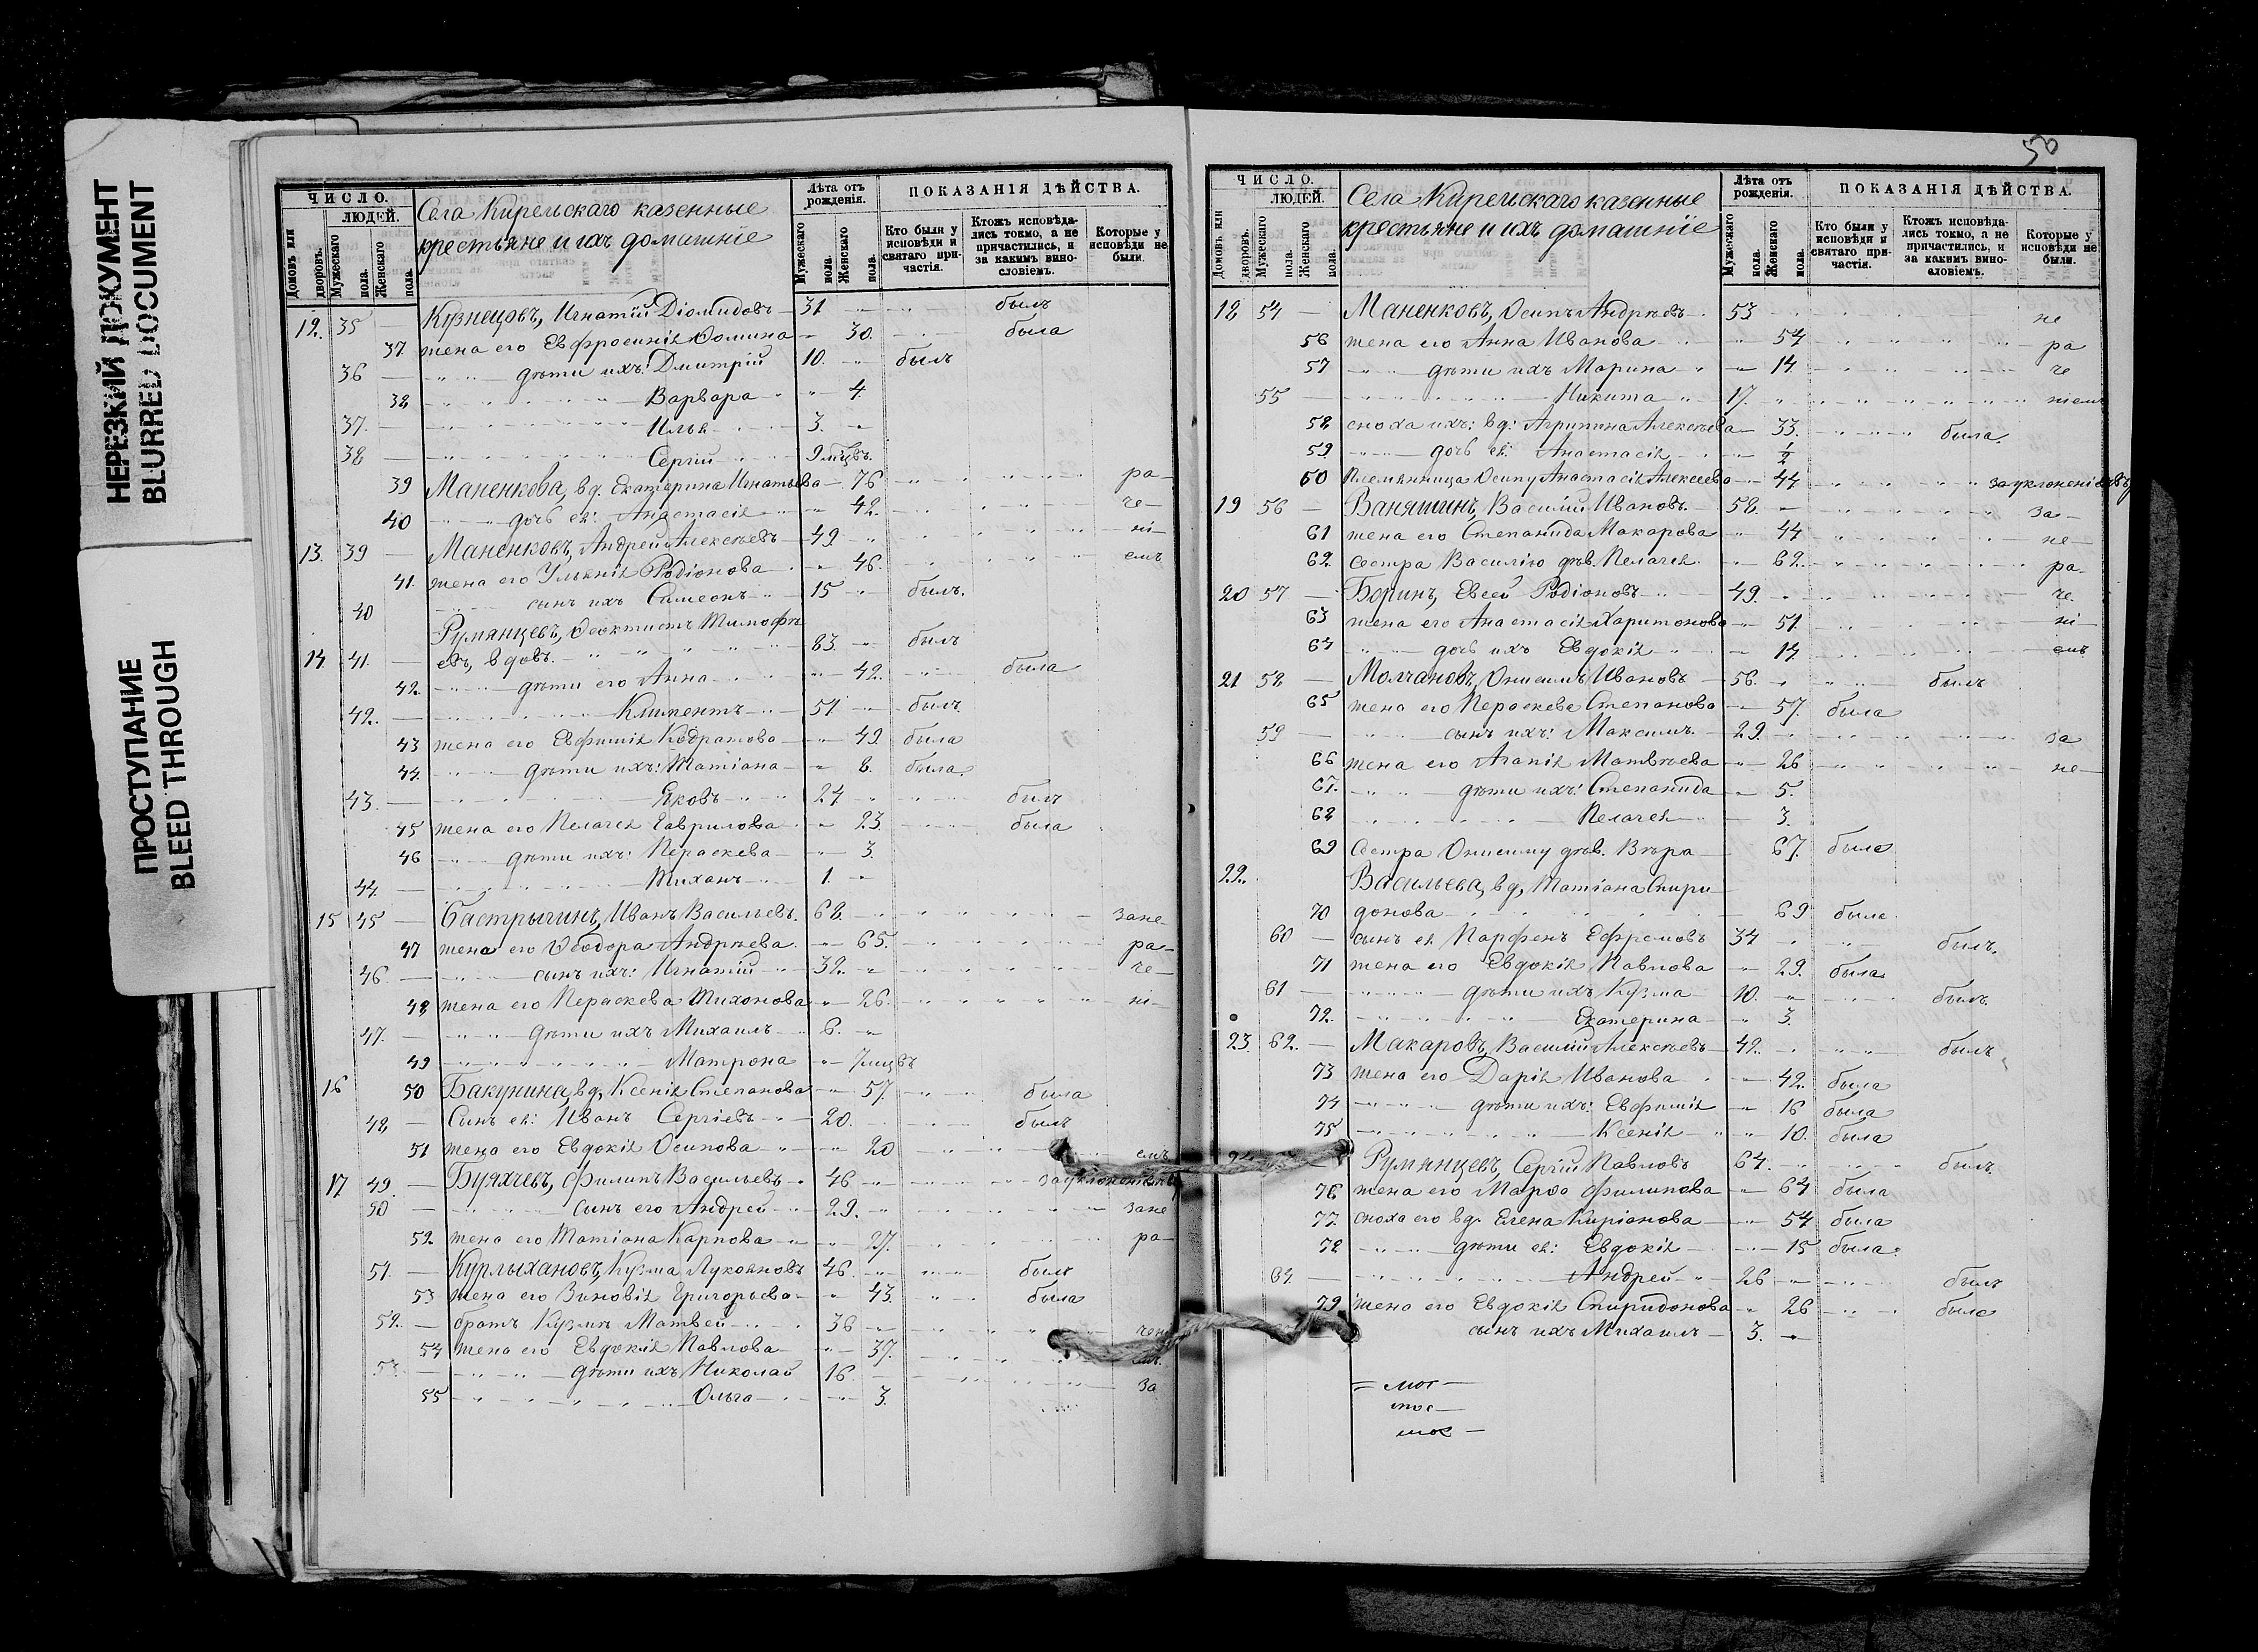 НЕРЕЗКИЙ ДОКУМЕНТ
BLURRED DOCUMENT
ПРОСТУПАНИЕ
BLEED THROUGH
ЧИСЛО.
ЛЮДЕЙ.
Домовъ или дворовъ.
Мужескаго пола.
Женскаго пола.
Села Кирельскаго казенные
крестьяне и ихъ домашніе
Лѣта отъ рожденія.
Мужескаго пола.
Женскаго пола.
ПОКАЗАНІЯ ДѢЙСТВА.
Кто были у исповѣди и святаго причастія.
Ктожъ исповѣдались токмо, а не причастились, и за какимъ винословіемъ.
Которые у исповѣди не были.
12. 35 Кузнецовъ, Игнатій Діомидовъ 31 былъ
37. жена его Евфросинія Фомина 30. была
36 дѣти ихъ: Дмитрій 10. былъ
38 Варвара 4.
37. Илья 3.
38 Сергій 9 мцвъ.
39 Маненкова, вд. Екатерина Игнатьева 76 ра-
40 дочь ея: Анастасія 42. че-
13. 39 Маненковъ, Андрей Алексѣевъ 49. ні-
41. жена его Ульянія Родіонова 46. емъ
40 сынъ ихъ Симеонъ 15 былъ.
Румянцевъ, Феоктистъ Тимофѣ
14 41. евъ, вдовъ. 83. былъ
42. дѣти его Анна 42. была
42. Климентъ 51 былъ
43 жена его Евфимія Кодратова 49. была
44. дѣти ихъ: Татіана 8. была.
43. Яковъ 24 былъ
45 жена его Пелагея Гаврилова 23. была
46 дѣти ихъ: Параскева 3.
44. Тихонъ 1.
15 45 Бастрыгинъ, Иванъ Васильевъ. 68. зане
47 жена его Ѳеодора Андрѣева. 65. ра-
46. сынъ ихъ: Игнатій 32. че-
48 жена его Параскева Тихонова 26. ні-
47. дѣти ихъ Михаилъ 6.
49 Матрона 7 мцвъ
16 50 Бакунина, вд, Ксенія Степанова 57. была
48. Сынъ ея: Иванъ Сергіевъ 20. былъ
51 жена его Евдокія Осипова 20 емъ
17 49. Буяхчевъ, Филипъ Васильевъ 46
50 сынъ его Андрей 29. зане
52. жена его Татіана Карпова 27. ра-
51. Курлыхановъ, Кузма Лукояновъ 46. былъ
53 жена его Зиновія Григорьева 43. была
52. братъ Кузмѣ Матвей 36
54 жена его Евдокія Павлова 37.
53. дѣти ихъ Николай 16. за
55 Ольга 3.
50
ЧИСЛО.
ЛЮДЕЙ.
Домовъ или дворовъ.
Мужескаго пола.
Женскаго пола.
Села Кирельскаго казенные
крестьяне и ихъ домашніе
Лѣта отъ рожденія.
Мужескаго пола.
Женскаго пола.
ПОКАЗАНІЯ ДѢЙСТВА.
Кто были у исповѣди и святаго причастія.
Ктожъ исповѣдались токмо, а не причастились, и за какимъ винословіемъ.
Которые у исповѣди не были.
18 54 Маненковъ, Осипъ Андрѣевъ 53 не
56 жена его Анна Иванова 54 ра
57 дѣти ихъ Марина 14. че
55 Никита 17. ніемъ
58 сноха ихъ: вд: Агрипина Алексѣева 33. была.
59. дочь ея: Анастасія ½
60 Племянница Осипу Анастасія Алексеева 44
19 56 Ванятинъ, Василій Ивановъ. 58. за-
61 жена его Степанида Макарова 44 не-
62. Сестра Василію дѣв. Пелагея 62. ра-
20 57 Боринъ, Евсей Родіоновъ 49. че-
63 жена его Анастасія Харитонова 51. ні-
64 дочь ихъ Евдокія 14. емъ
21 58 Молчановъ, Онисимъ Ивановъ 56. былъ
65 жена его Параскева Степанова 57. была
59 сынъ ихъ: Максимъ. 29. за
66 жена его Агапія Матвѣева 26 не-
67. дѣти ихъ: Степанида 5.
68 Пелагея 3.
69 Сестра Онисиму дѣв. Вѣра 67. была
22. Васильева, вд, Татіана Спири
70 донова 69 была.
60 сынъ ея Парфенъ Ефремовъ 34 былъ.
71 жена его Евдокія Павлова 29. была.
61 дѣти ихъ Кузма 10. былъ.
72. Екатерина 3.
23. 62. Макаровъ, Василій Алексѣевъ 42. былъ
73 жена его Дарія Иванова 42. была
74 дѣти ихъ: Евфимія 16 была
75 Ксенія 10. была
24 Румянцевъ, Сергій Павловъ 64. былъ
76 жена его Марѳа Филипова 64 была
77. сноха его вд. Елена Киріанова 54 была
78 дѣти ея: Евдокія 15 была.
64. Андрей 26 былъ
79 жена его Евдокія Спиридонова 26 была
сынъ ихъ Михаилъ 3.